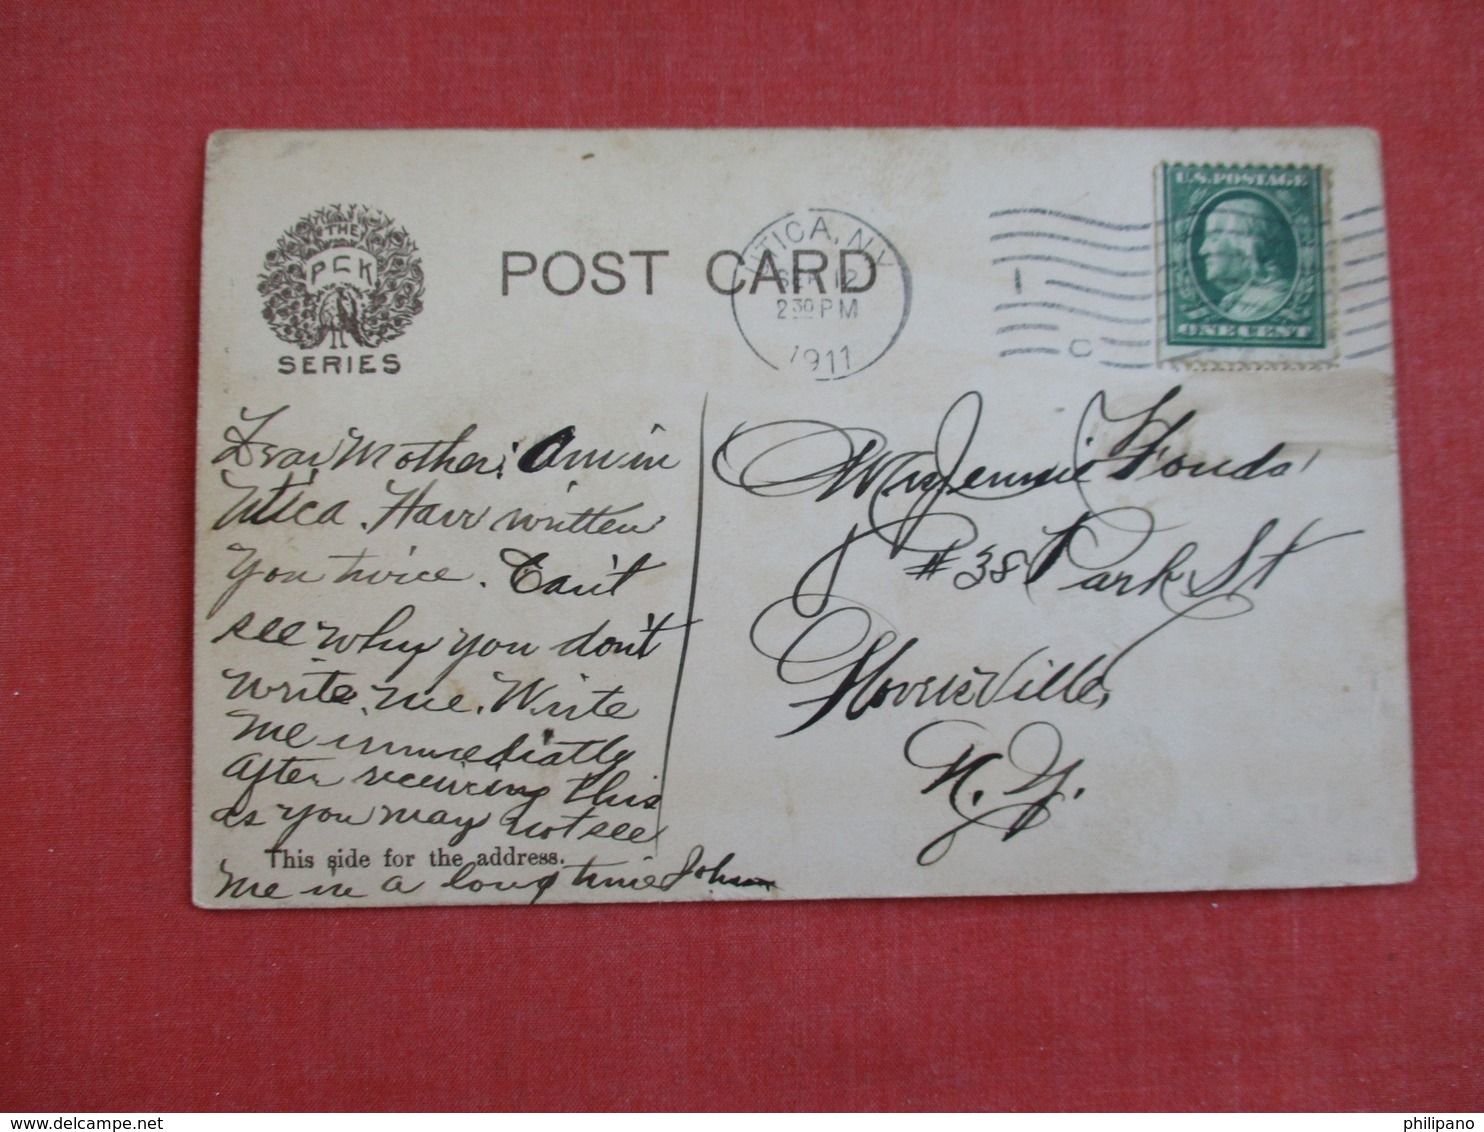 THE
PCK
SERIES
POST CARD
UTICA, N.Y.
SEP 12
2 30 PM
1911
1
C
U.S. POSTAGE
ONE CENT
Dear Mother; Am in
Utica. Have written
you twice. Can't
see why you don't
write me. Write
me immediatly
after receiving this
as you may not see
This side for the address.
me in a long time John
Jennie Fonda
#38 Park St
Gloversville,
N.Y.
philipano